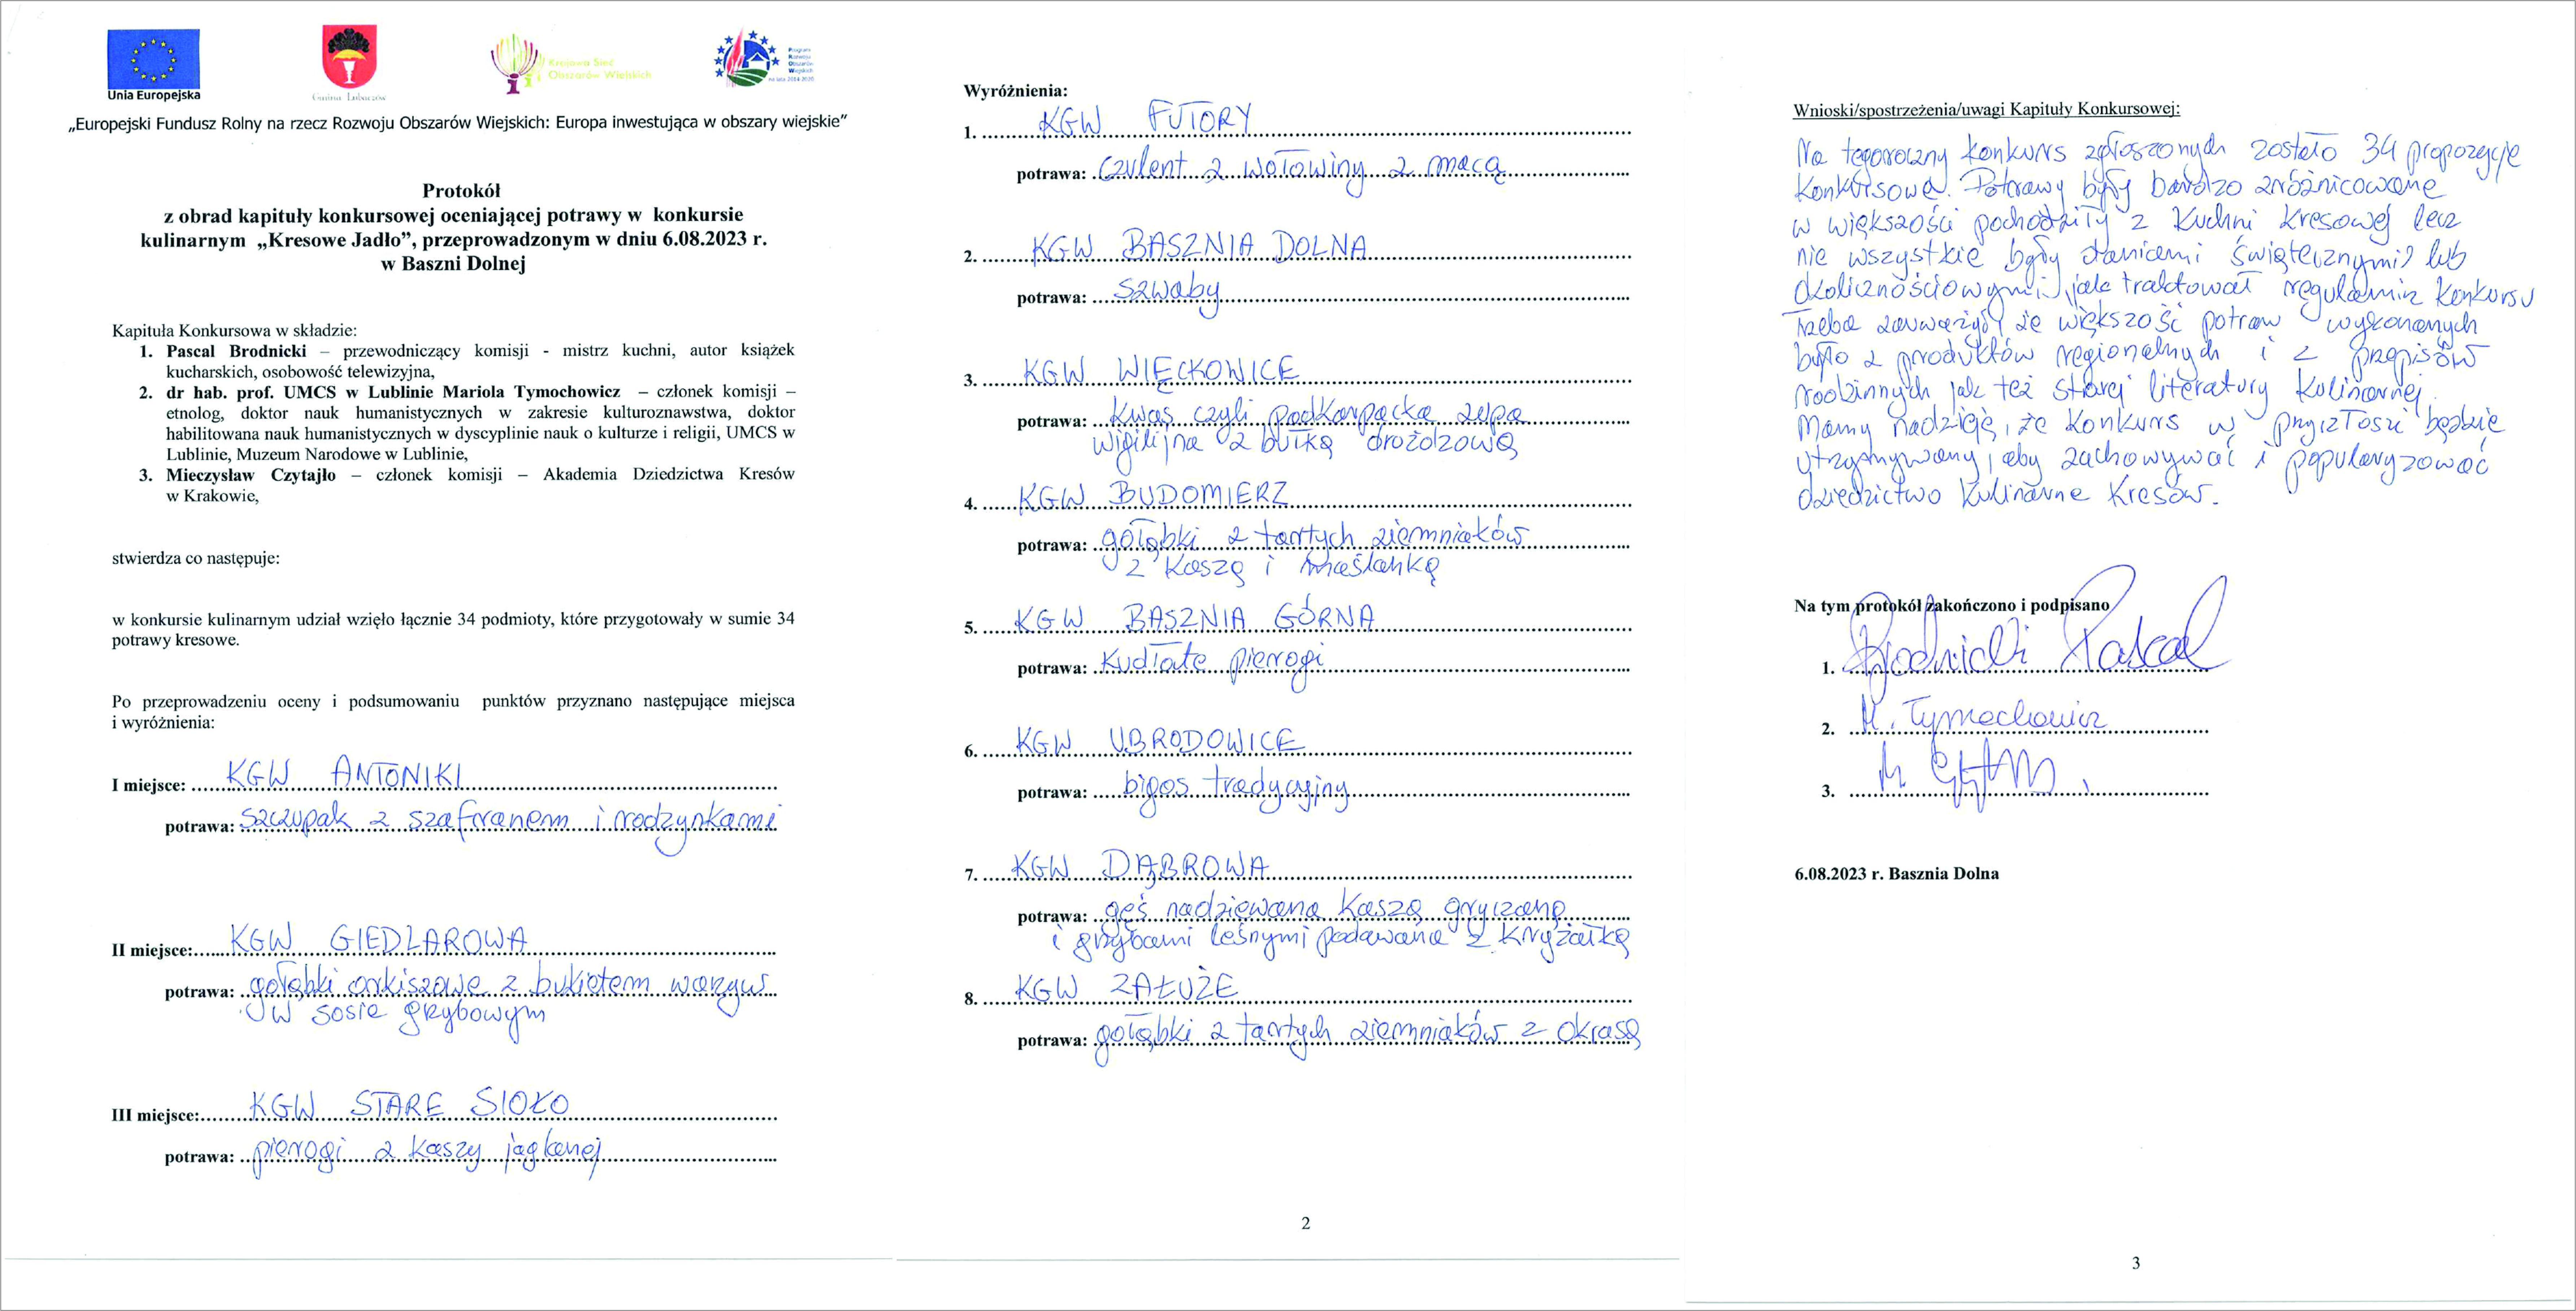 Unia Europejska
Gmina Lubaczów
Krajowa Sieć
Obszarów Wiejskich
Program
Rozwoju
Obszarów
Wiejskich
na lata 2014-2020
„Europejski Fundusz Rolny na rzecz Rozwoju Obszarów Wiejskich: Europa inwestująca w obszary wiejskie”
Protokół
z obrad kapituły konkursowej oceniającej potrawy w konkursie
kulinarnym „Kresowe Jadło”, przeprowadzonym w dniu 6.08.2023 r.
w Baszni Dolnej
Kapituła Konkursowa w składzie:
1. Pascal Brodnicki – przewodniczący komisji - mistrz kuchni, autor książek
kucharskich, osobowość telewizyjna,
2. dr hab. prof. UMCS w Lublinie Mariola Tymochowicz – członek komisji –
etnolog, doktor nauk humanistycznych w zakresie kulturoznawstwa, doktor
habilitowana nauk humanistycznych w dyscyplinie nauk o kulturze i religii, UMCS w
Lublinie, Muzeum Narodowe w Lublinie,
3. Mieczysław Czytajło – członek komisji – Akademia Dziedzictwa Kresów
w Krakowie,
stwierdza co następuje:
w konkursie kulinarnym udział wzięło łącznie 34 podmioty, które przygotowały w sumie 34
potrawy kresowe.
Po przeprowadzeniu oceny i podsumowaniu punktów przyznano następujące miejsca
i wyróżnienia:
I miejsce: KGW ANTONIKI
potrawa: szczupak z szafranem i rodzynkami
II miejsce: KGW GIEDLAROWA
potrawa: gołąbki orkiszowe z bukietem warzyw
w sosie grzybowym
III miejsce: KGW STARE SIOŁO
potrawa: pierogi z kaszy jaglanej
Wyróżnienia:
1. KGW FUTORY
potrawa: czulent z wołowiny z macą
2. KGW BASZNIA DOLNA
potrawa: szwaby
3. KGW WIĘCKOWICE
potrawa: kwas czyli podkarpacka zupa
wigilijna z bułką drożdzową
4. KGW BUDOMIERZ
potrawa: gołąbki z tartych ziemniaków
z kaszą i maślanką
5. KGW BASZNIA GÓRNA
potrawa: kudłate pierogi
6. KGW UBRODOWICE
potrawa: bigos tradycyjny
7. KGW DĄBROWA
potrawa: gęś nadziewana kaszą gryczaną
i grzybami leśnymi podawana z kryżałką
8. KGW ZAŁUŻE
potrawa: gołąbki z tartych ziemniaków z okrasą
2
Wnioski/spostrzeżenia/uwagi Kapituły Konkursowej:
Na tegoroczny konkurs zgłoszonych zostało 34 propozycje
konkursowe. Potrawy były bardzo zróżnicowane
w większości pochodziły z kuchni kresowej lecz
nie wszystkie były daniami świątecznymi lub
okolicznościowymi, jak traktował regulamin konkursu
Trzeba zauważyć, że większość potraw wykonanych
było z produktów regionalnych i z przepisów
rodzinnych jak też starej literatury kulinarnej.
Mamy nadzieję, że konkurs w przyszłości będzie
utrzymywany, aby zachowywać i popularyzować
dziedzictwo kulinarne Kresów.
Na tym protokół zakończono i podpisano
1. Brodnicki Pascal
2. M. Tymochowicz
3.
6.08.2023 r. Basznia Dolna
3